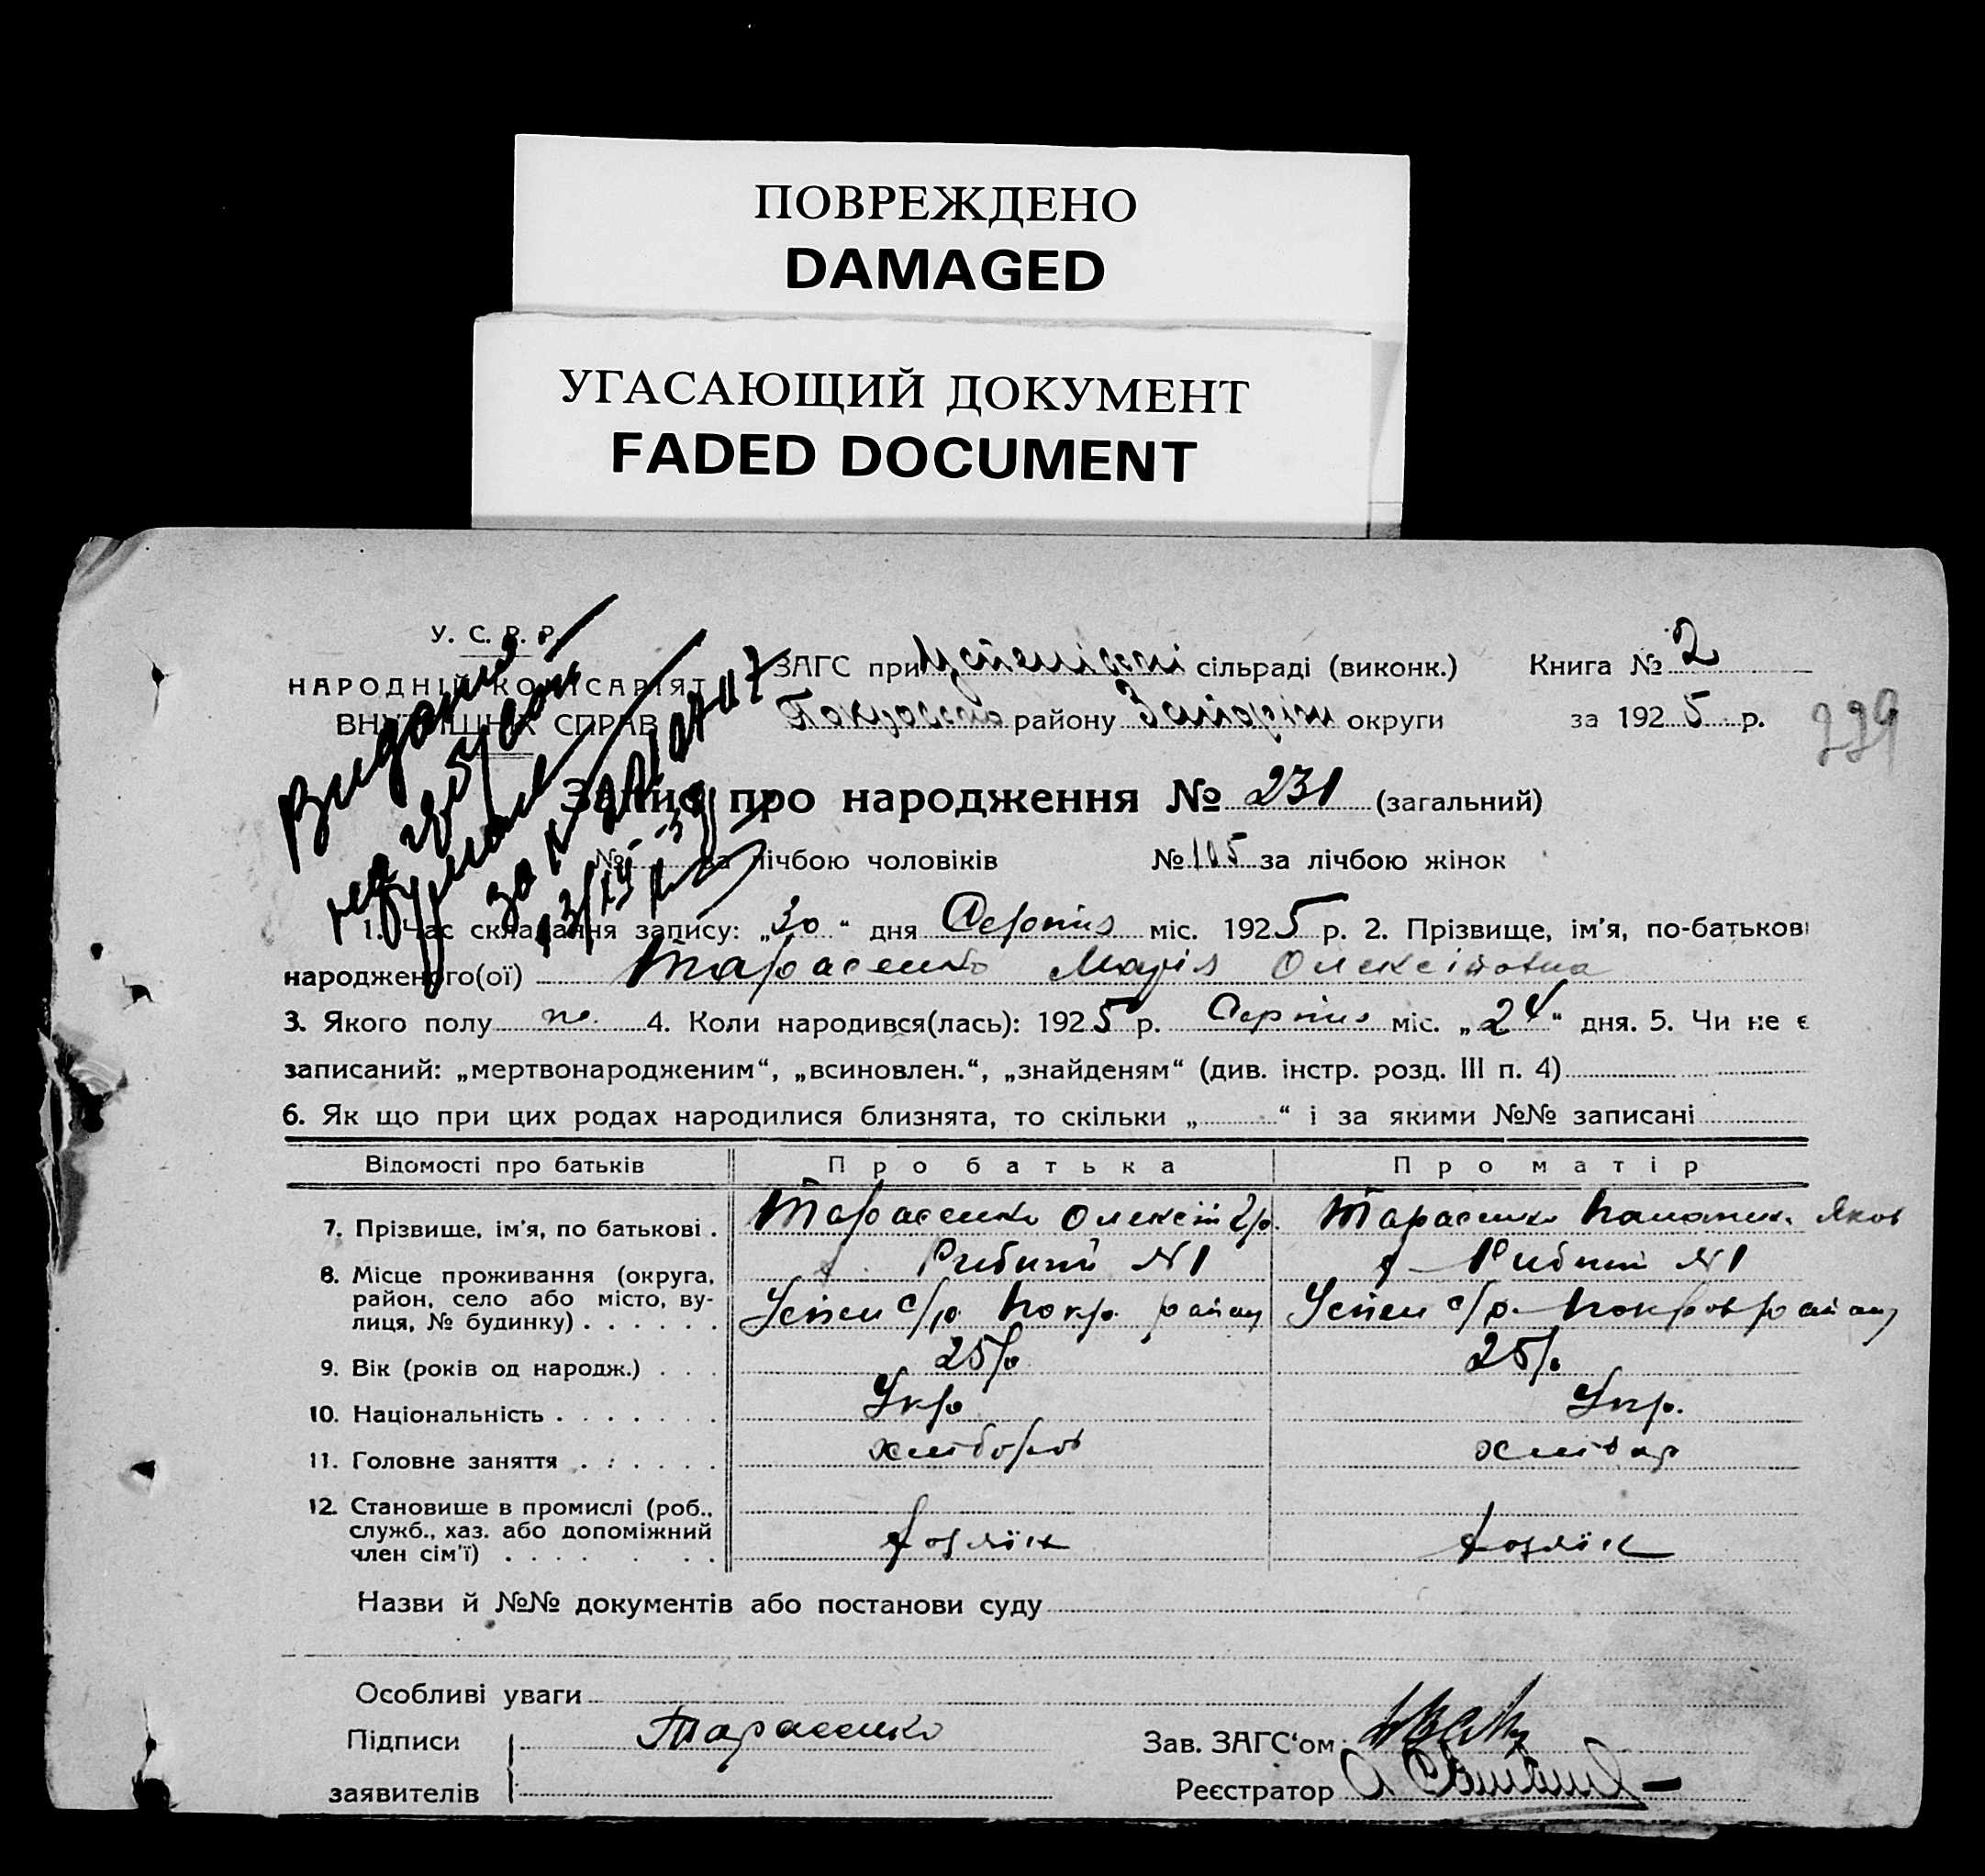 ПОВРЕЖДЕНО
DAMAGED
УГАСАЮЩИЙ ДОКУМЕНТ
FADED DOCUMENT
У. С. Р. Р.
НАРОДНІЙ КОМІСАРІЯТ
ВНУТРІШНІХ СПРАВ
ЗАГС при сільраді (виконк.) Книга № 2
району округи за 1925 р.
229
Видано
Запис про народження № 231 (загальний)
№ за лічбою чоловіків № 105 за лічбою жінок
1. Час складання запису: „30“ дня Серпня міс. 1925 р. 2. Прізвище, ім'я, по-батькові
народженого(ої) Тарасенко Марія Олексіївна
3. Якого полу 4. Коли народився(лась): 1925 р. Серпня міс. „24“ дня. 5. Чи не є
записаний: „мертвонародженим“, „всиновлен.“, „знайденям“ (див. інстр. розд. III п. 4)
6. Як що при цих родах народилися близнята, то скільки „ “ і за якими №№ записані
Відомості про батьків Про батька Про матір
7. Прізвище, ім'я, по батькові . Тарасенко Олексій Гр. Тарасенко Яков
8. Місце проживання (округа, район, село або місто, вулиця, № будинку) . . . . . .
х. Рибний №1 х Рибний №1
Успен с/р Покр. району Успен с/р. Покров району
9. Вік (років од народж.) . . . 25 р. 25 р.
10. Національність . . . . . . . Укр. Укр.
11. Головне заняття . . . . . . хлібороб
12. Становище в промислі (роб., служб., хаз. або допоміжний член сім'ї) . . . . . . .
хозяїн хозяїн
Назви й №№ документів або постанови суду
Особливі уваги
Підписи Тарасенко Зав. ЗАГС'ом
заявителів Реєстратор